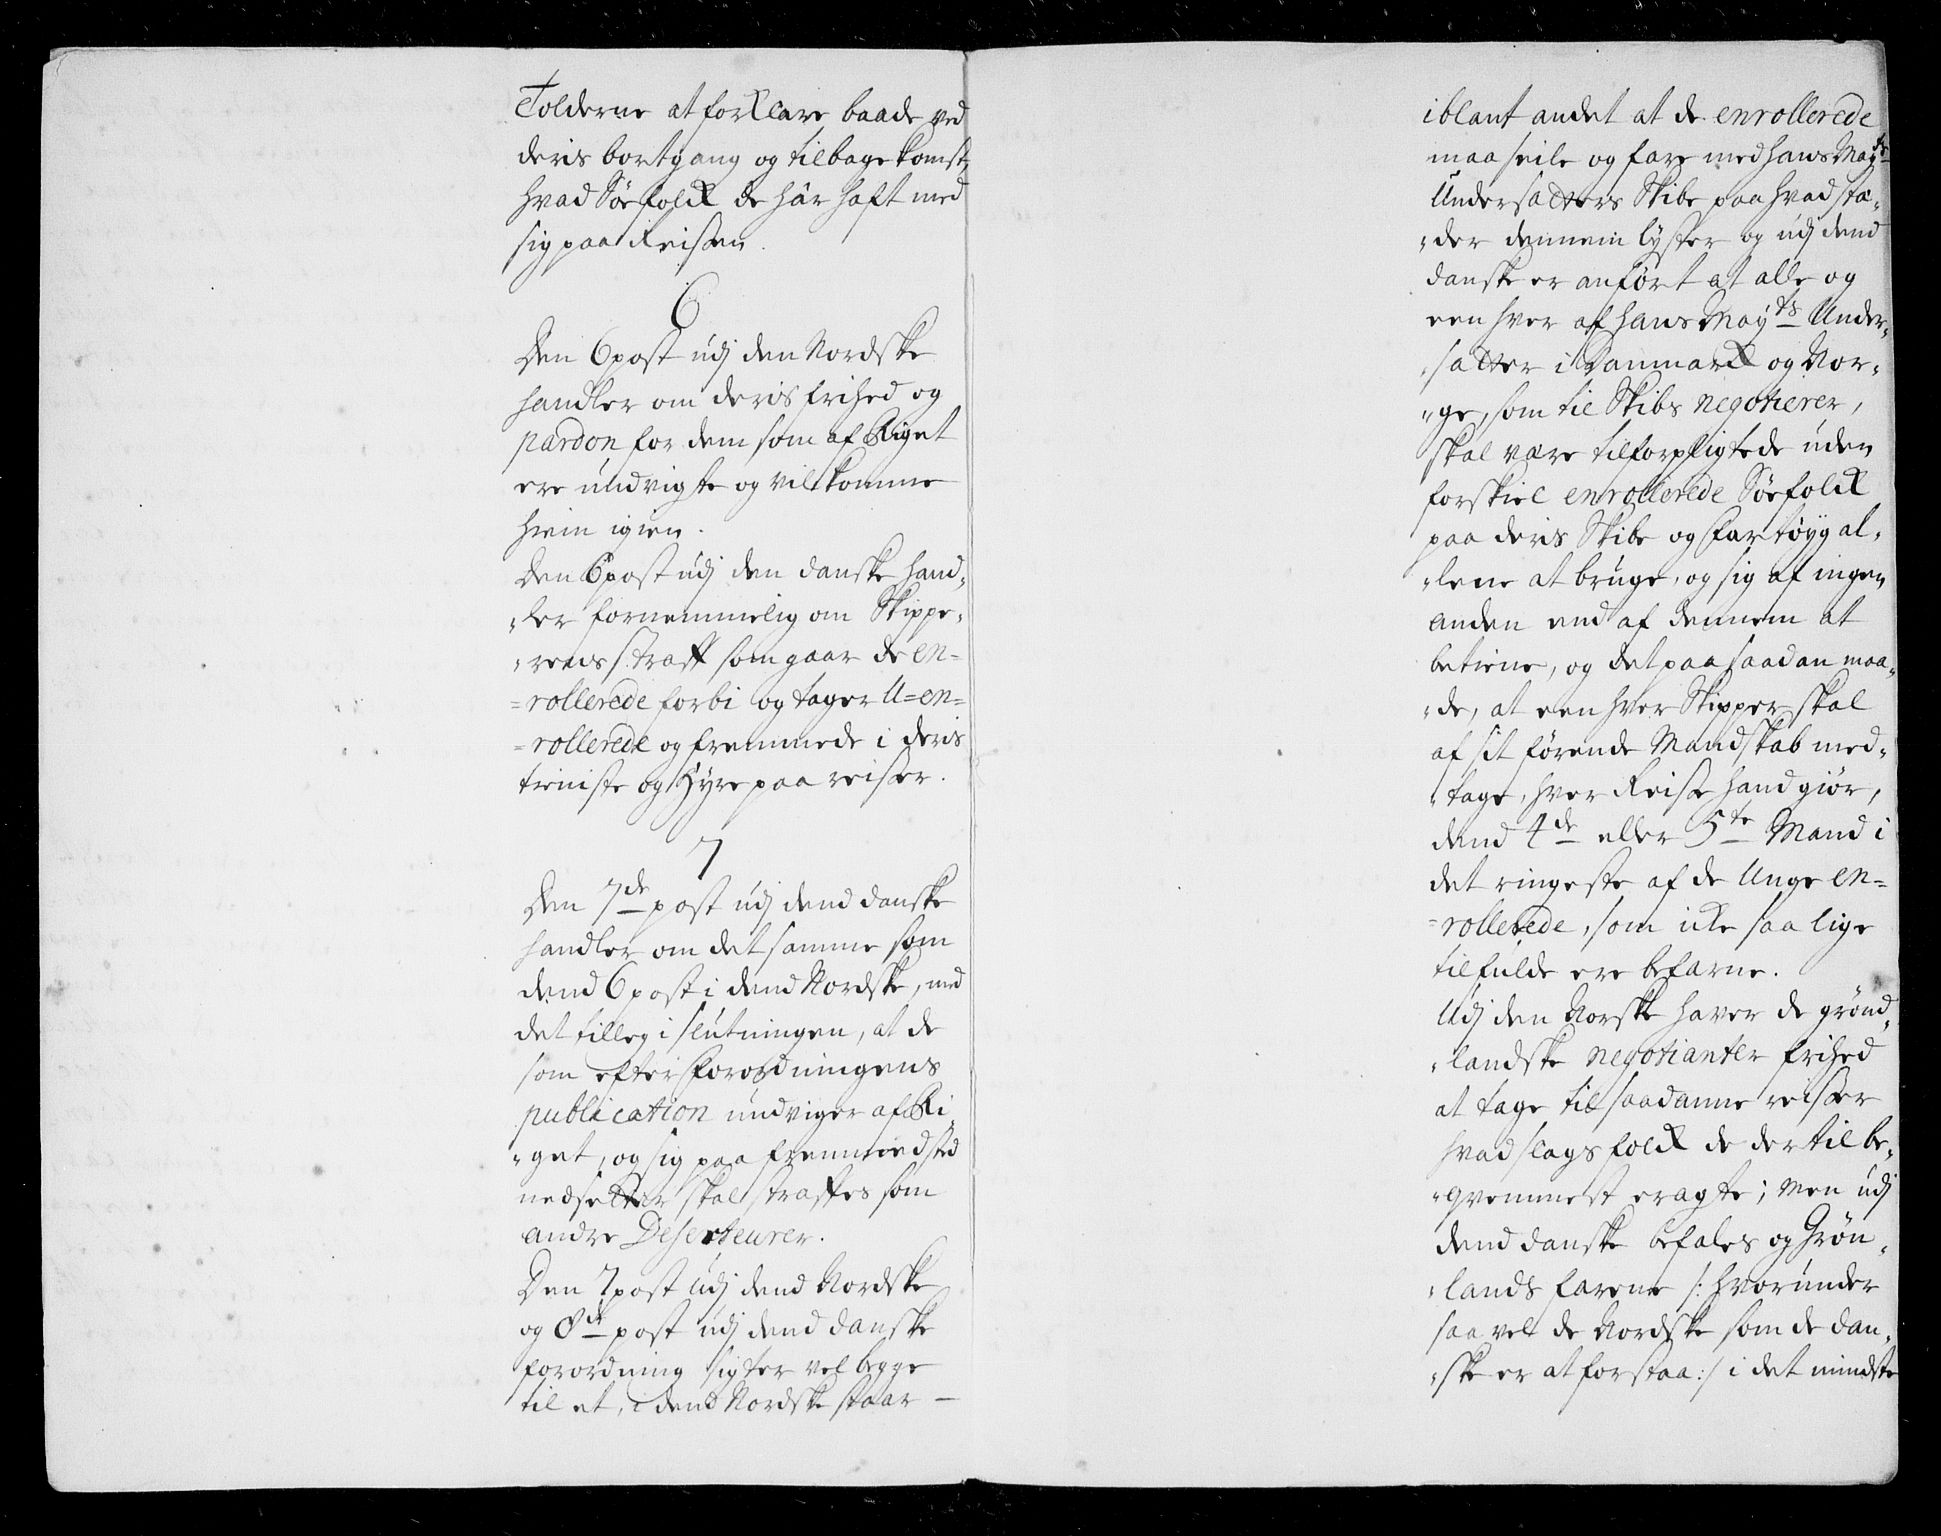 Tolderne at forklare baade ved
deris bortgang og tilbagekomst,
hvad Söefolk de här haft med
sig paa Reisen.
6
Den 6 post udj den Nordske
handler om deris frihed og
pardon for dem som af Riget
ere undvigte og vil komme
hiem igien.
Den 6 post udj den danske hand„
„ler fornemmelig om Skippe„
„rens straff som gaar de en=
=rollerede forbi og tager U=en=
=rollerede og fremmede i deris
tieniste og Hyre paa reiser.
7
Den 7de post udj dend danske
handler om det samme som
dend 6 post i dend Nordske, med
det tilleg i slutningen, at de
som efter forordningens
publication undviger af Ri„
„get, og sig paa fremmed sted
nedsetter skal straffes som
andre Deserteurer.
Den 7 post Udj dend Nordske
og 8de post udj dend danske
forordning sigter vel begge
til et, i dend Nordske staar –
iblant andet at de enrollerede
maa seile og fare med hans Mayts
Undersatters Skibe paa hvad stæ„
„der dennem lyster og udj dend
danske er anfört at alle og
een hver af hans Mayts Under„
„satter i Danmark og Nor„
„ge, som til Skibs negotierer,
skal være tilforpligtede uden
forskiel enrollerede Söefolk
paa deris Skibe og Fartöyg al„
„lene at bruge, og sig af ingen
anden end af dennem at
betiene, og det paa saadan maa„
„de, at een hver Skipper skal
af sit förende Mandskab med„
„tage, hver Reise hand giör,
dend 4de eller 5te Mand i
det ringeste af de Unge en=
=rollerede, som icke saa lige
tilfulde ere befarne.
Udj den Norske haver de grönd„
„landske negotianter frihed
at tage til saadanne reiser
hvad slags folk de der til be„
„qvemmest eragte; Men udj
dend danske befales og Grön„
„lands farene /: hvorunder
saa vel de Nordske som de dan„
„ske er at forstaa :/ i det mindste